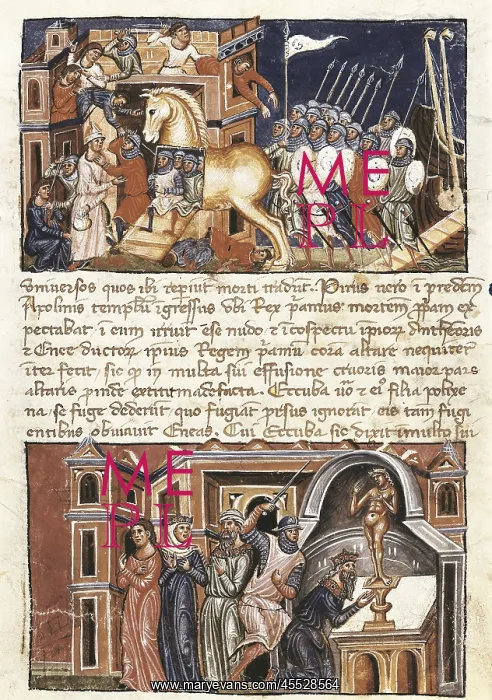 ME
PL
universos quos ibi repiut morti tradut. Pirus vero i predem
Apolinis templu igressus ubi Rex pantus mortem ppam ex
pectabat i eum irruit ese nudo & i cospectu ipior Antheoris
& Enee ductor ipius Regem pamu cora altare nequiter
iter fecit, sic qp in multa sui effusione cruoris maior pars
altaris extitit madefacta. Eccuba uo & ei filia polixe
na se fuge dederut quo fugiat psus ignorat, eis tam fugi
entibus obuiauit Eneas. Cui Eccuba sic dixit multo sui
ME
PL
www.maryevans.com/45528564